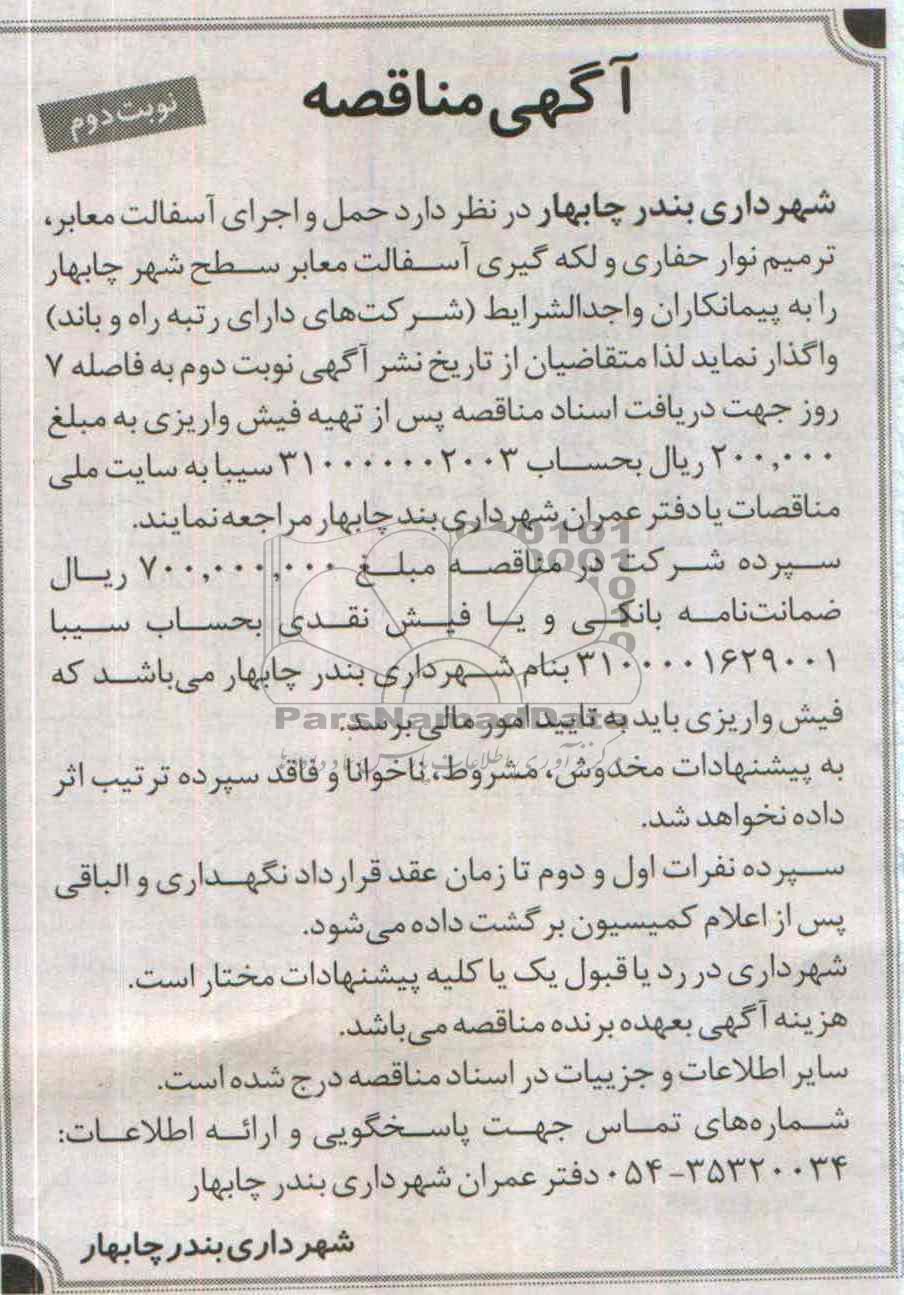 آگهی مناقصه
نوبت دوم
شهرداری بندر چابهار در نظر دارد حمل و اجرای آسفالت معابر،
ترمیم نوار حفاری و لکه گیری آسفالت معابر سطح شهر چابهار
را به پیمانکاران واجدالشرایط (شرکت‌های دارای رتبه راه و باند)
واگذار نماید لذا متقاضیان از تاریخ نشر آگهی نوبت دوم به فاصله ۷
روز جهت دریافت اسناد مناقصه پس از تهیه فیش واریزی به مبلغ
۲۰۰,۰۰۰ ریال بحساب ۳۱۰۰۰۰۰۰۲۰۰۳ سیبا به سایت ملی
مناقصات یا دفتر عمران شهرداری بند چابهار مراجعه نمایند.
سپرده شرکت در مناقصه مبلغ ۷۰۰,۰۰۰,۰۰۰ ریال
ضمانت‌نامه بانکی و یا فیش نقدی بحساب سیبا
۳۱۰۰۰۰۱۶۲۹۰۰۱ بنام شهرداری بندر چابهار می‌باشد که
فیش واریزی باید به تایید امور مالی برسد.
ParsNamadData
به پیشنهادات مخدوش، مشروط، ناخوانا و فاقد سپرده ترتیب اثر
داده نخواهد شد.
سپرده نفرات اول و دوم تا زمان عقد قرارداد نگهداری و الباقی
پس از اعلام کمیسیون برگشت داده می‌شود.
شهرداری در رد یا قبول یک یا کلیه پیشنهادات مختار است.
هزینه آگهی بعهده برنده مناقصه می‌باشد.
سایر اطلاعات و جزییات در اسناد مناقصه درج شده است.
شماره‌های تماس جهت پاسخگویی و ارائه اطلاعات:
۰۵۴-۳۵۳۲۰۰۳۴ دفتر عمران شهرداری بندر چابهار
شهرداری بندر چابهار